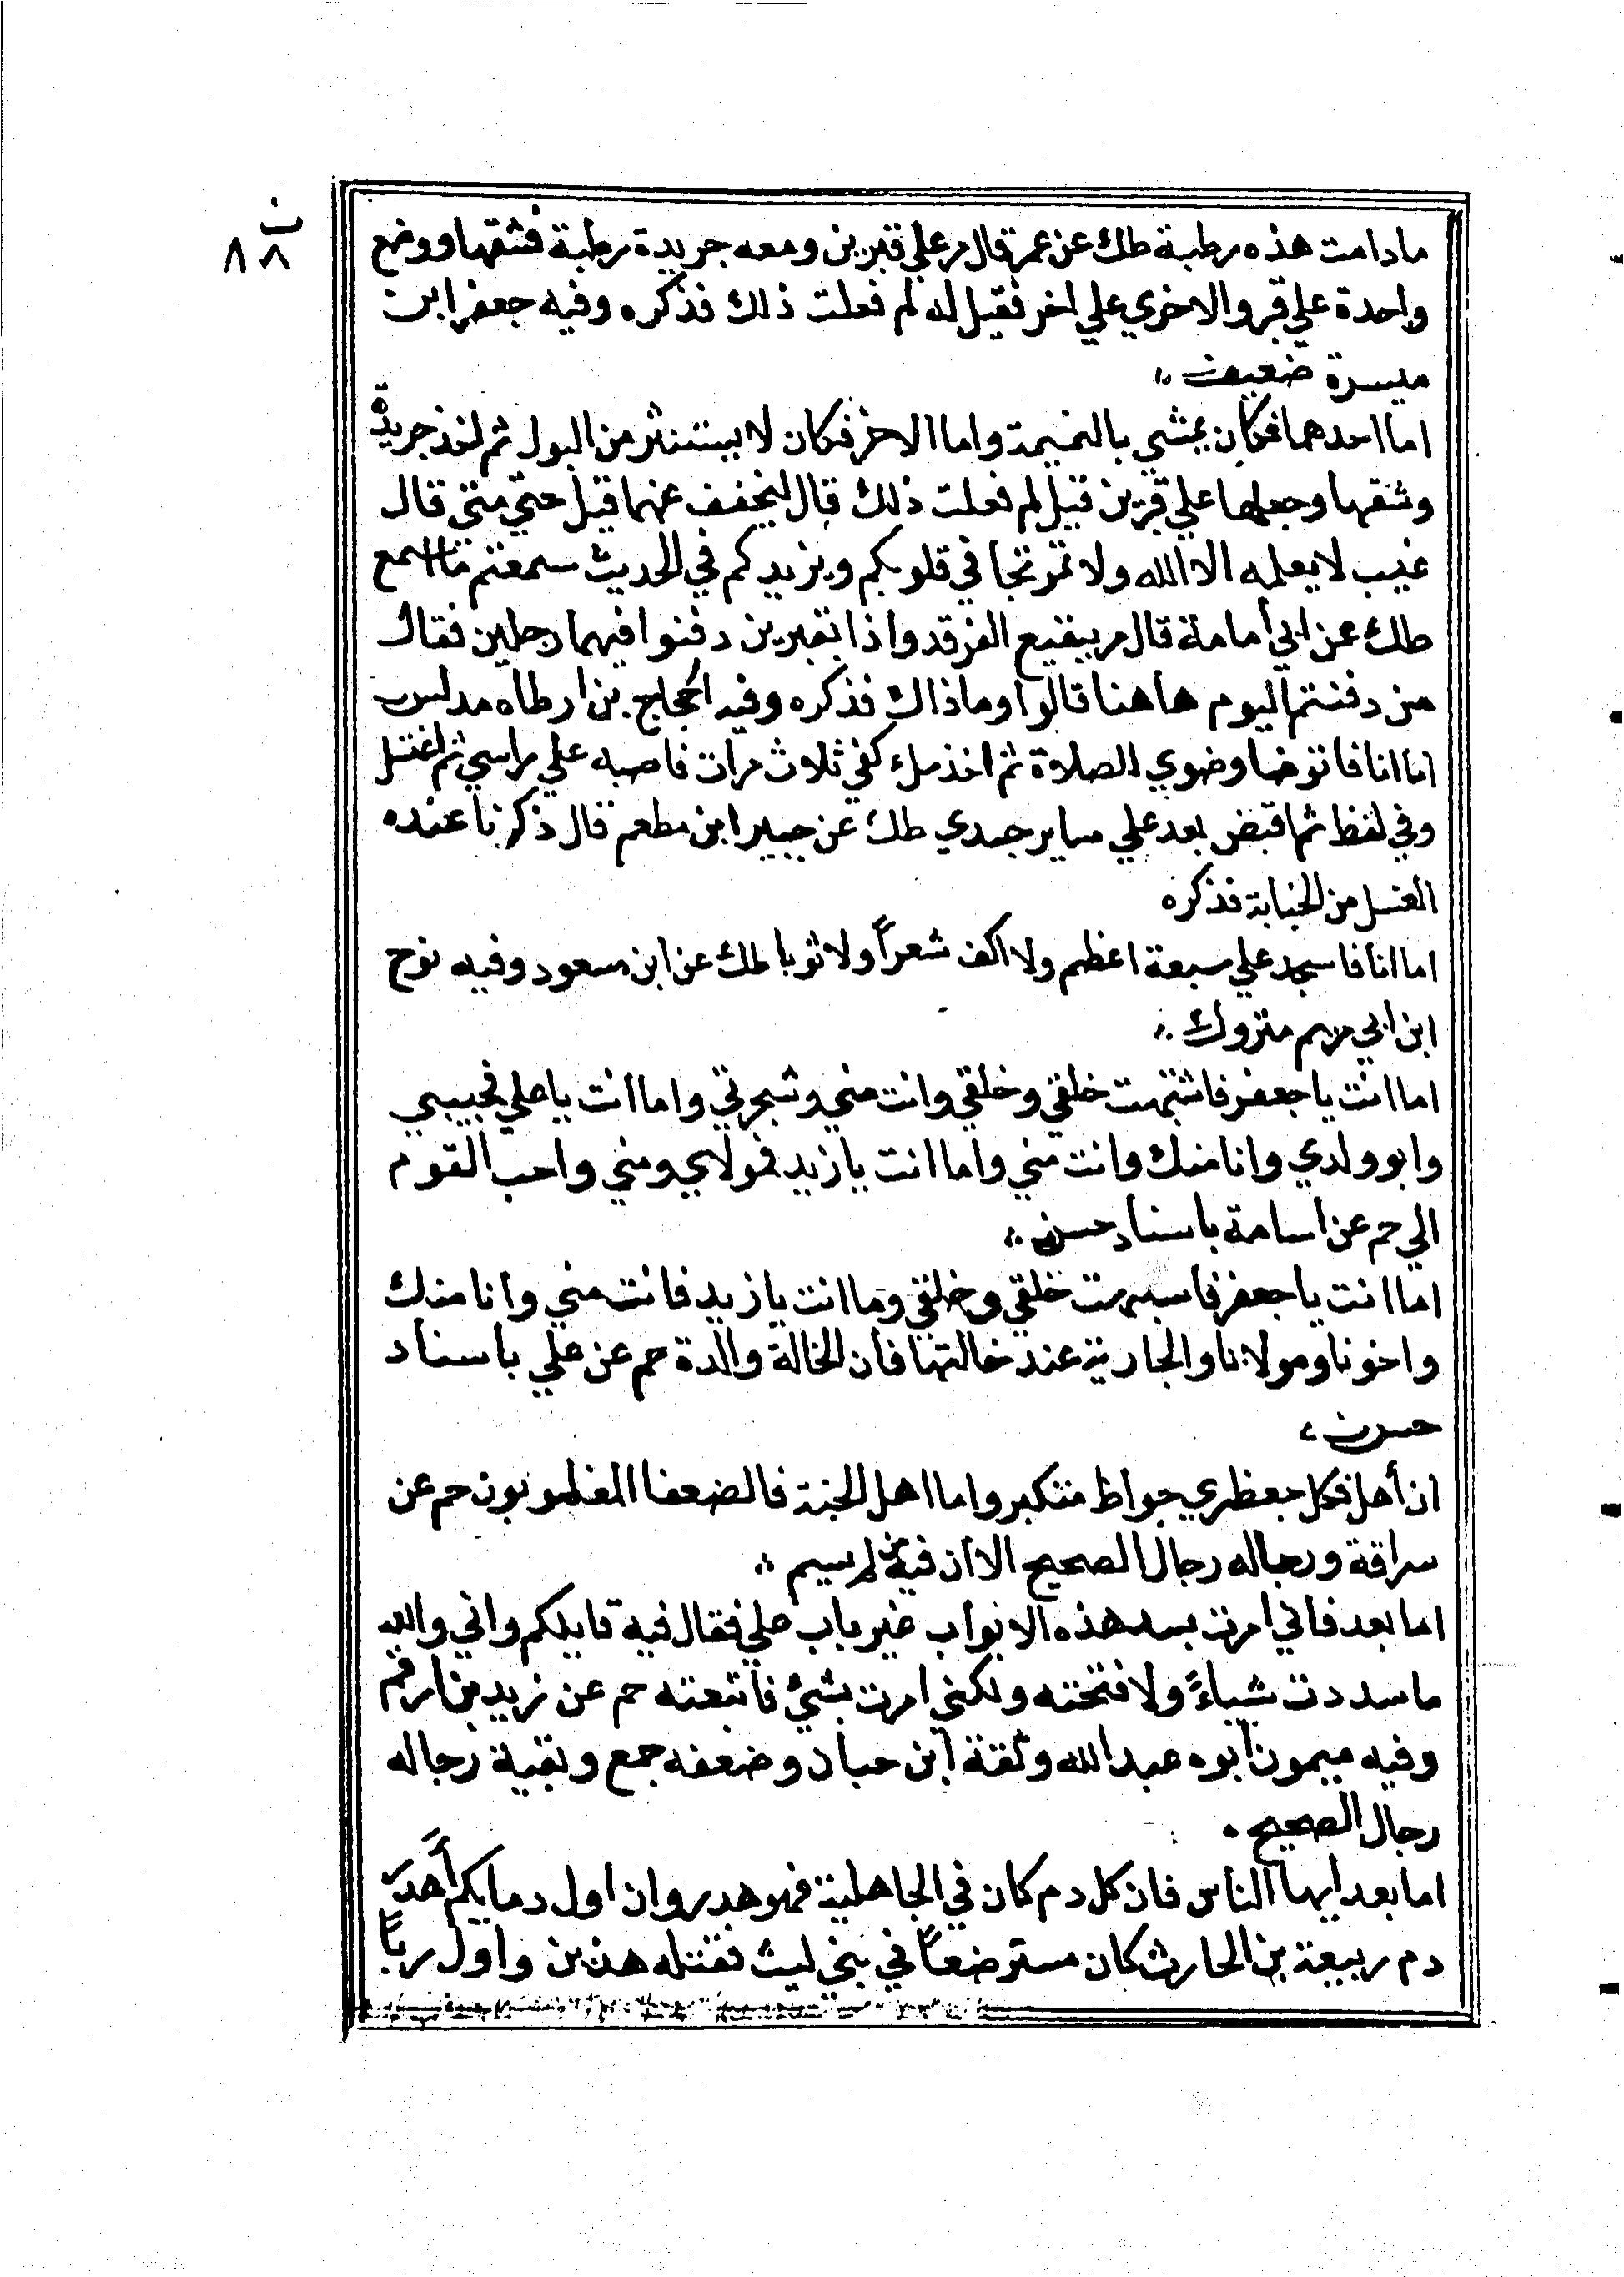 ن
٨٨
مادامت هذه رطبة طك عن عمر قال مر علي قبرين ومعه جريدة رطبة فشقها ووضع
واحدة علي قبر والاخري علي اخر فقيل له لم فعلت ذلك فذكره وفيه جعفر ابن
ميسرة ضعيف
اما احدهما فكان يمشي بالنميمة واما الاخر فكان لا يستنثر من البول ثم اخذ جريدة
وشقها وجعلها علي قبرين قيل لم فعلت ذلك قال ليخفف عنهما قيل حتي متي قال
غيب لا يعلمه الا الله ولا تمرتجا في قلوبكم ويزيدكم في الحديث سمعتم ما اسمع
طك عن ابي أمامة قال مر ببقيع الغرقد واذا بقبرين دفنوا فيهما رجلين فقال
من دفنتم اليوم هاهنا قالوا وماذاك فذكره وفيه الحجاج بن ارطاه مدلس
اما انا فاتوضا وضوي للصلاة ثم اخذ ملء كفي ثلاث مرات فاصبه علي راسي ثم اغتسل
وفي لفظ ثم اقبض بعد علي ساير جسدي طك عن جبير ابن مطعم قال ذكرنا عنده
الغسل من الجنابة فذكره
اما انا فاسجد علي سبعة اعظم ولا اكف شعراً ولا ثوبا طك عن ابن مسعود وفيه نوح
ابن ابي مريم متروك
اما انت يا جعفر فاشبهت خلقي وخلقي وانت مني وشجرتي واما انت يا علي فحبيبي
وابو ولدي وانا منك وانت مني واما انت يا زيد فمولاي ومني واحب القوم
الي حم عن اسامة باسناد حسن
اما انت يا جعفر فاشبهت خلقي وخلقي وما انت يا زيد فانت مني وانا منك
واخونا ومولانا والجارية عند خالتها فان الخالة والدة حم عن علي باسناد
حسن
ان أهل فكل جعظري جواظ متكبر واما اهل الجنة فالضعفا المغلوبون حم عن
سراقة ورجاله رجال الصحيح الا أن فيه من لم يسم
اما بعد فاني امرت بسد هذه الابواب غير باب علي فقال فيه قايلكم واني والله
ما سددت شياءً ولا فتحته ولكني امرت بشيء فاتبعته حم عن زيد بن ارقم
وفيه ميمون ابوه عبد الله وثقة ابن حبان وضعفه جمع وبقية رجاله
رجال الصحيح
اما بعد ايها الناس فان كل دم كان في الجاهلية فهو هدر وان اول دمايكم أهدر
دم ربيعة بن الحارث كان مسترضعاً في بني ليث فقتله هذين واول رباً